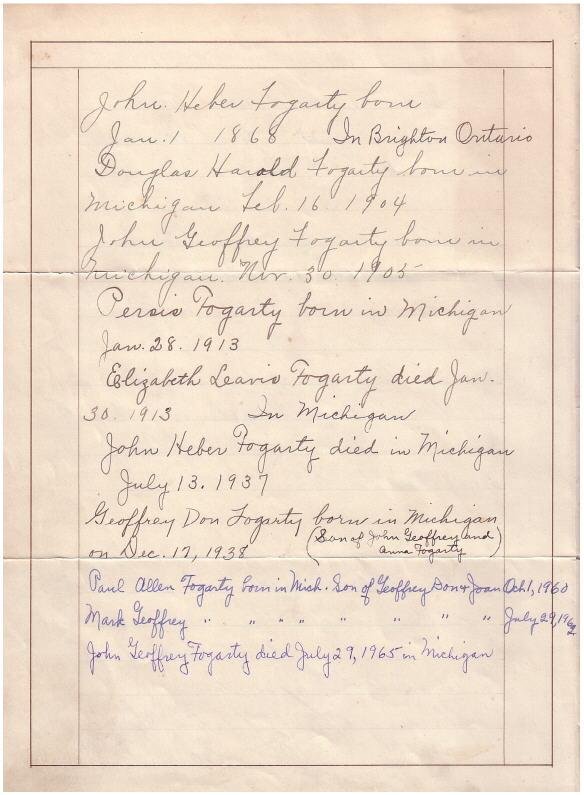 John Heber Fogarty born
Jan. 1 1868 In Brighton Ontario
Douglas Harold Fogarty born in
Michigan Feb. 16. 1904
John Geoffrey Fogarty born in
Michigan. Nov. 30. 1905
Persis Fogarty born in Michigan
Jan. 28. 1913
Elizabeth Leavis Fogarty died Jan.
30. 1913 In Michigan
John Heber Fogarty died in Michigan
July 13. 1937
Geoffrey Don Fogarty born in Michigan
on Dec. 17, 1938 (Son of John Geoffrey and
Anna Fogarty)
Paul Allen Fogarty born in Mich. Son of Geoffrey Don & Joan Oct 1, 1960
Mark Geoffrey " " " " " " " " July 29, 
John Geoffrey Fogarty died July 29, 1965 in Michigan